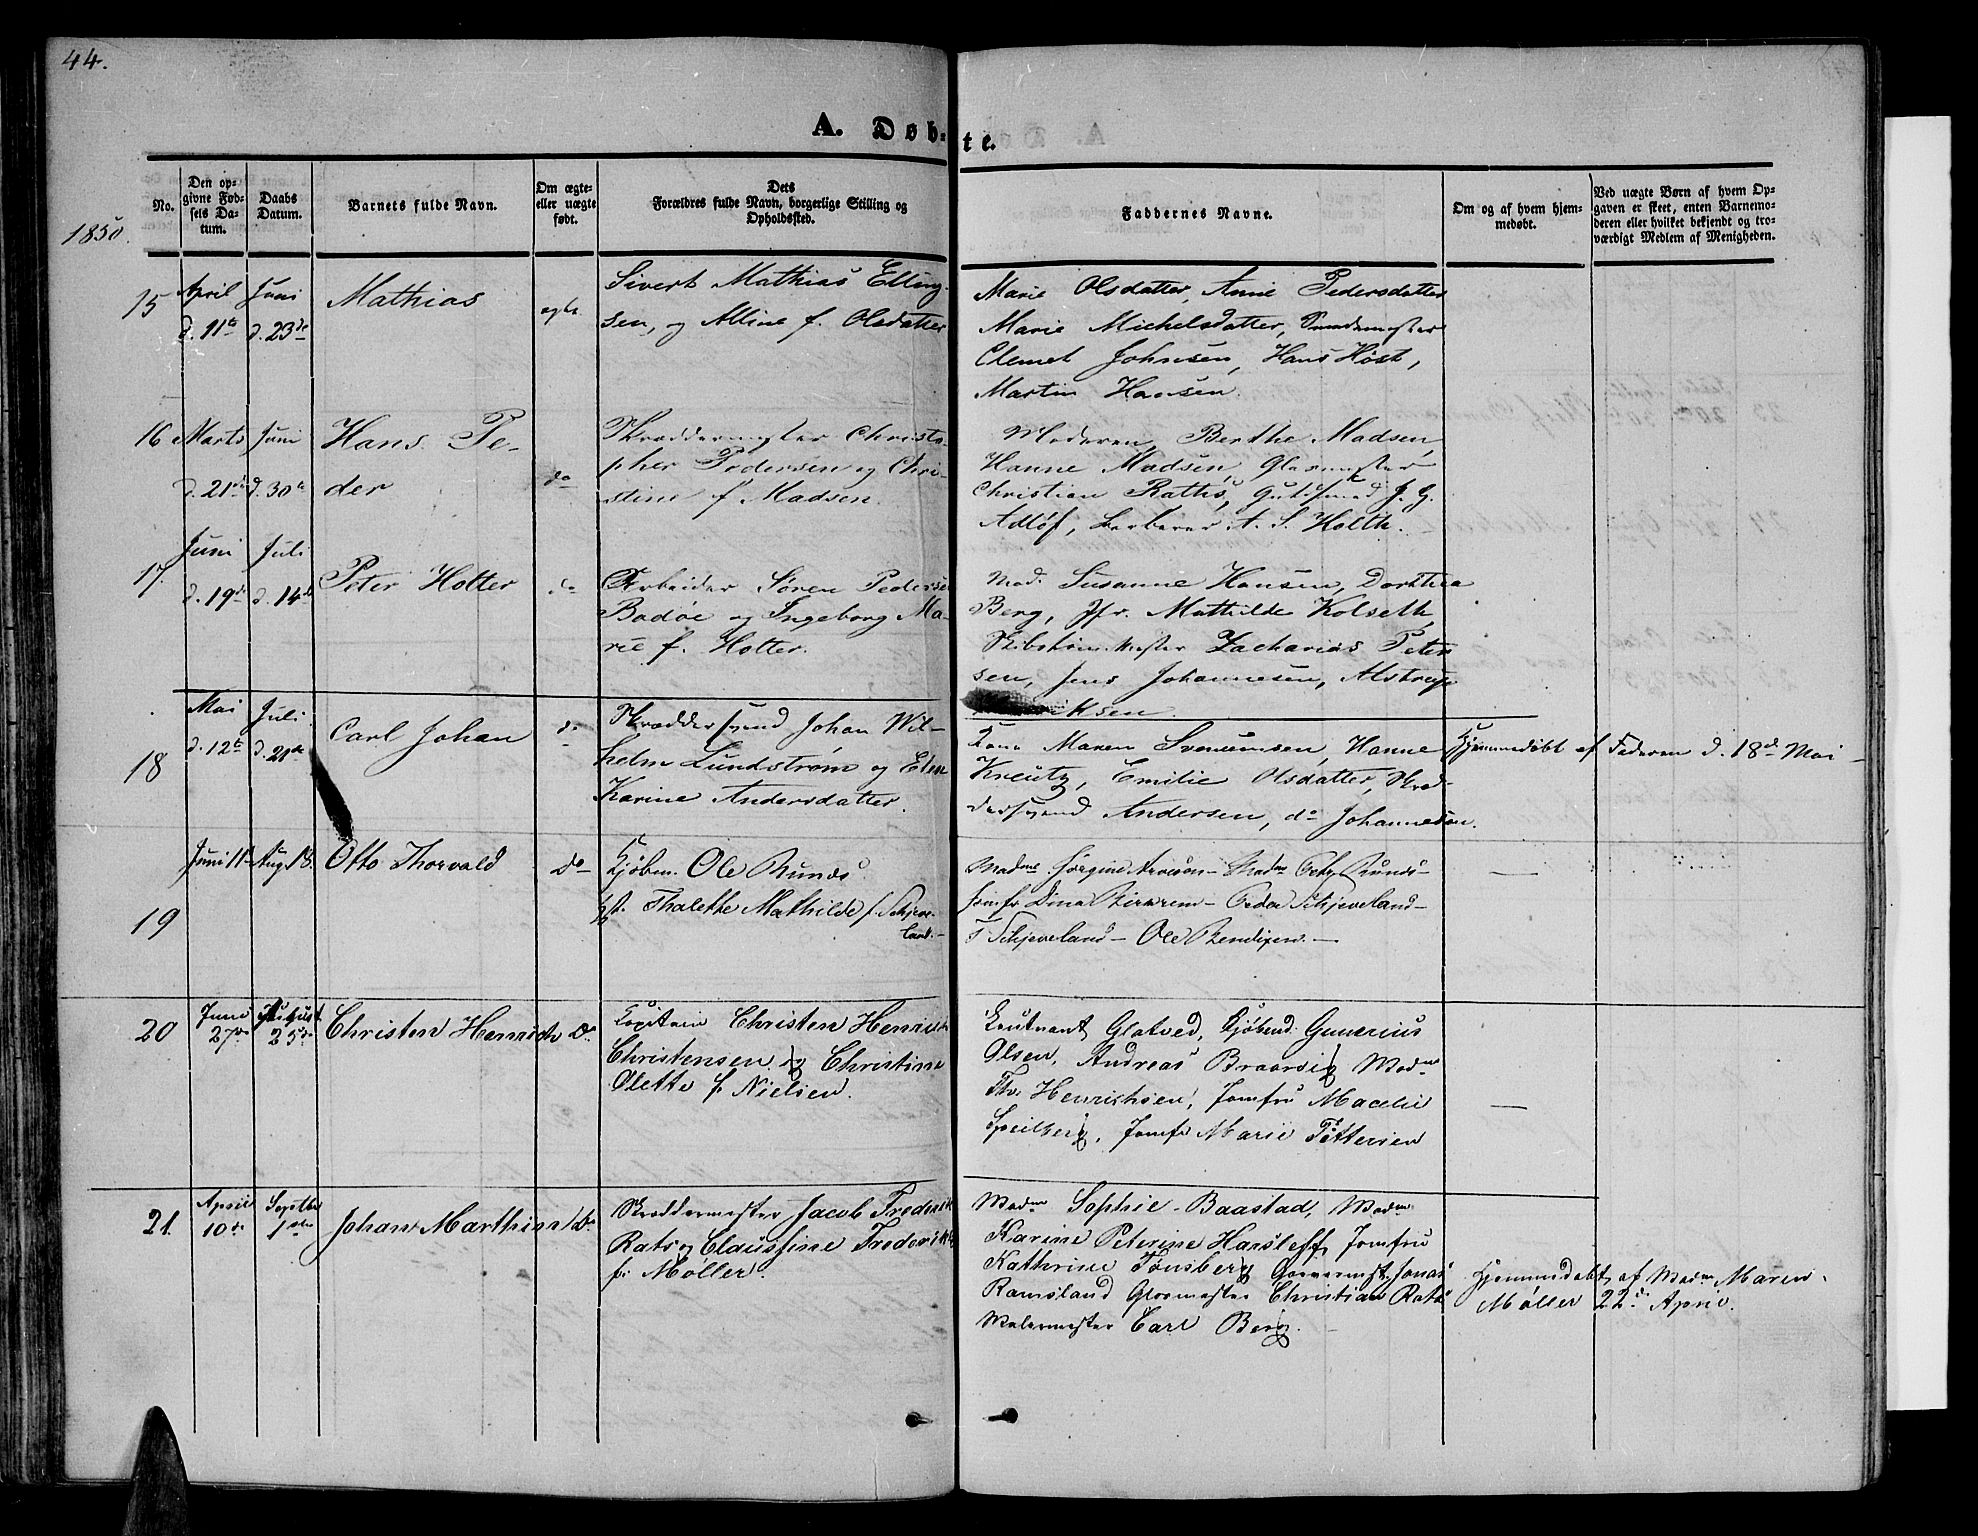 44.
A. Døb-
te.
1850.
No.
Den op-
givne Fød-
sels Da-
tum.
Daabs
Datum.
Barnets fulde Navn.
Om ægte-
eller uægte
født.
Dets
Forældres fulde Navn, borgerlige Stilling og
Opholdssted.
Faddernes Navne.
Om og af hvem hjem-
medøbt.
Ved uægte Børn af hvem Op-
gaven er skeet, enten Barnemo-
deren eller hvilket bekjendt og tro-
værdigt Medlem af Menigheden.
15
April
d. 11te
Juni
d. 23de
Mathias
ægte
Sivert Mathias Elling-
sen, og Alline f. Olsdatter
Marie Olsdatter, Anne Pedersdatter
Marie Michelsdatter,
Clemet Johnsen, Hans Høst,
Martin Hansen.
16
Marts
d. 21de
Juni
d. 30te
Hans Pe-
der
do
Skreddermester Christo-
pher Pedersen og Chri-
stine f Madsen.
Moderen, Berthe Madsen,
Hanne Madsen, Glasmester
Christian Raths, J. G.
Adløf, A. S. Holth.
17.
Juni
d. 19de
Juli
d. 14de
Peter Holter
do
Arbeider Søren Pedersen
Badøe og Ingeborg Ma-
rie f. Holter.
Mad. Susanne Hansen, Dorthea
Berg, Jfr. Mathilde Kolseth,
Zacharias Peter
sen, Jens Johannesen, Alstrup
riksen.
18
Mai
d. 12te
Juli
d. 21de
Carl Johan
do
Skreddersvend Johan Wil-
helm Lundstrøm og Elen
Karine Andersdatter.
Kone Maren Svendsen, Hanne
Kreutz, Emilie Olsdatter, Skræd-
dersvend Andersen, do Johannesen.
Hjemmedøbt af Faderen d. 18d Mai
19
Juni 11te
Aug. 18.
Otto Thorvald
do
Kjøbm. Ole Runds
Thalette Mathilde f. Skjeve-
land.
Madme Jørgine Arvesen - Madme Runds -
Jomfr Dina Birkrem - Peder Skjeveland -
T Skjeveland - Ole Bendixen. -
20
Juni
27de
August
25de
Christen Henrich
do
Kapitain Christen Henrich
Christensen og Christine
Olette f. Nielsen.
Leutnant Glatved, Kjøbmd. Gunerius
Olsen, Andreas Braarvig, Madme
Th. Henrichsen, Jomfru Macelie
Speilberg, Jomfr Marie Tøttersen
21.
April
10de
Septbr
1ste
Johan Marthin
do
Skreddermester Jacob Frederik
Rats og Claussine Frederikke
f. Møller.
Madme Sophie Baastad, Madme
Karine Peterine Harsleff, Jomfru
Kathrine Tønsberg Garvermest. Jonas
Ramsland Glasmester Christian Rats
Malermester Carl Berg.
Hjemmedøbt af Madme Maren
Møller 22de April.